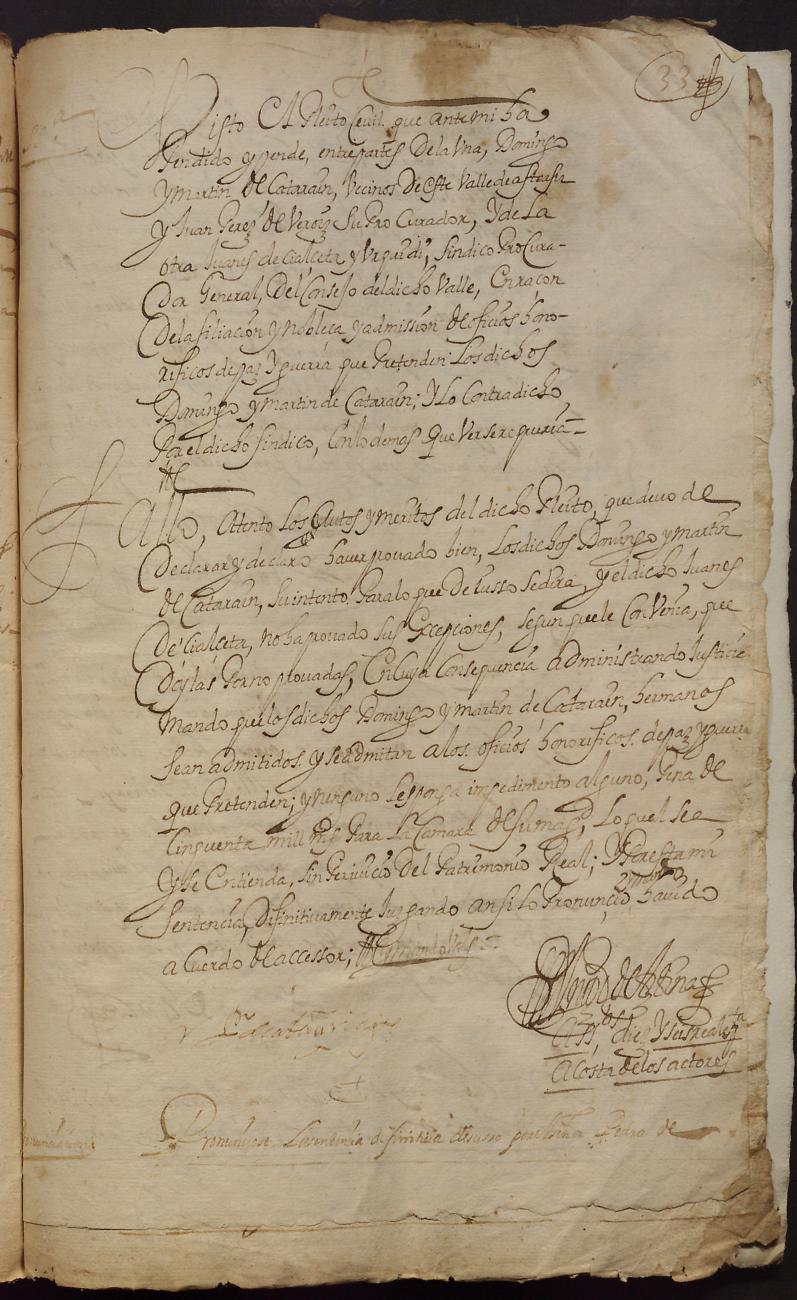 33
Visto El Pleito Cevil que ante mi ha
Pendido y pende, entre partes De la Una, Domingo
y Martin de Catarain, Vecinos De este Valle de
y Juan Perez de Veroiz Su Procurador, Y de La
otra Juanes de Cialceta y Urquidi, Sindico Procura-
dor General, Del Consejo del dicho Valle, En raçon
De la filiacion y Nobleça y admission de oficios hono-
rificos de paz y guerra que Pretenden Los dichos
Domingo y Martin de Catarain; Y Lo Contradicho
Por el dicho Sindico, Con lo demas que Ver se requeria -
Fallo, Attento Los Autos y meritos del dicho Pleito, que devo de
Declarar y declaro haver provado bien, Los dichos Domingo y Martin
de Catarain, Su intento Para lo que De Iusso se dira, y el dicho Juanes
De Cialceta, no ha provado sus Excepciones, segun que le Convenia, que
Doylas Por no provadas, En cuya Consequencia administrando Justicia
Mando que los dichos Domingo y Martin de Catarain, hermanos
sean admitidos y se admitan a los oficios honorificos de paz y guerra
que Pretenden; y ninguno les ponga impedimento alguno, Pena de
Cinquenta mill mrs Para La Camara de su magd, Lo qual sea
Y se Entienda, sin Perjuicio Del Patrimonio Real; Y Por esta mi
Sentencia, Difinitivamente Juzgando ansi Lo Pronunçio y mando havido
acuerdo de accessor;
diez y seis reales
a costa de los actores
Pronunciose La sentencia difinitiva de suso por el señor Pedro de